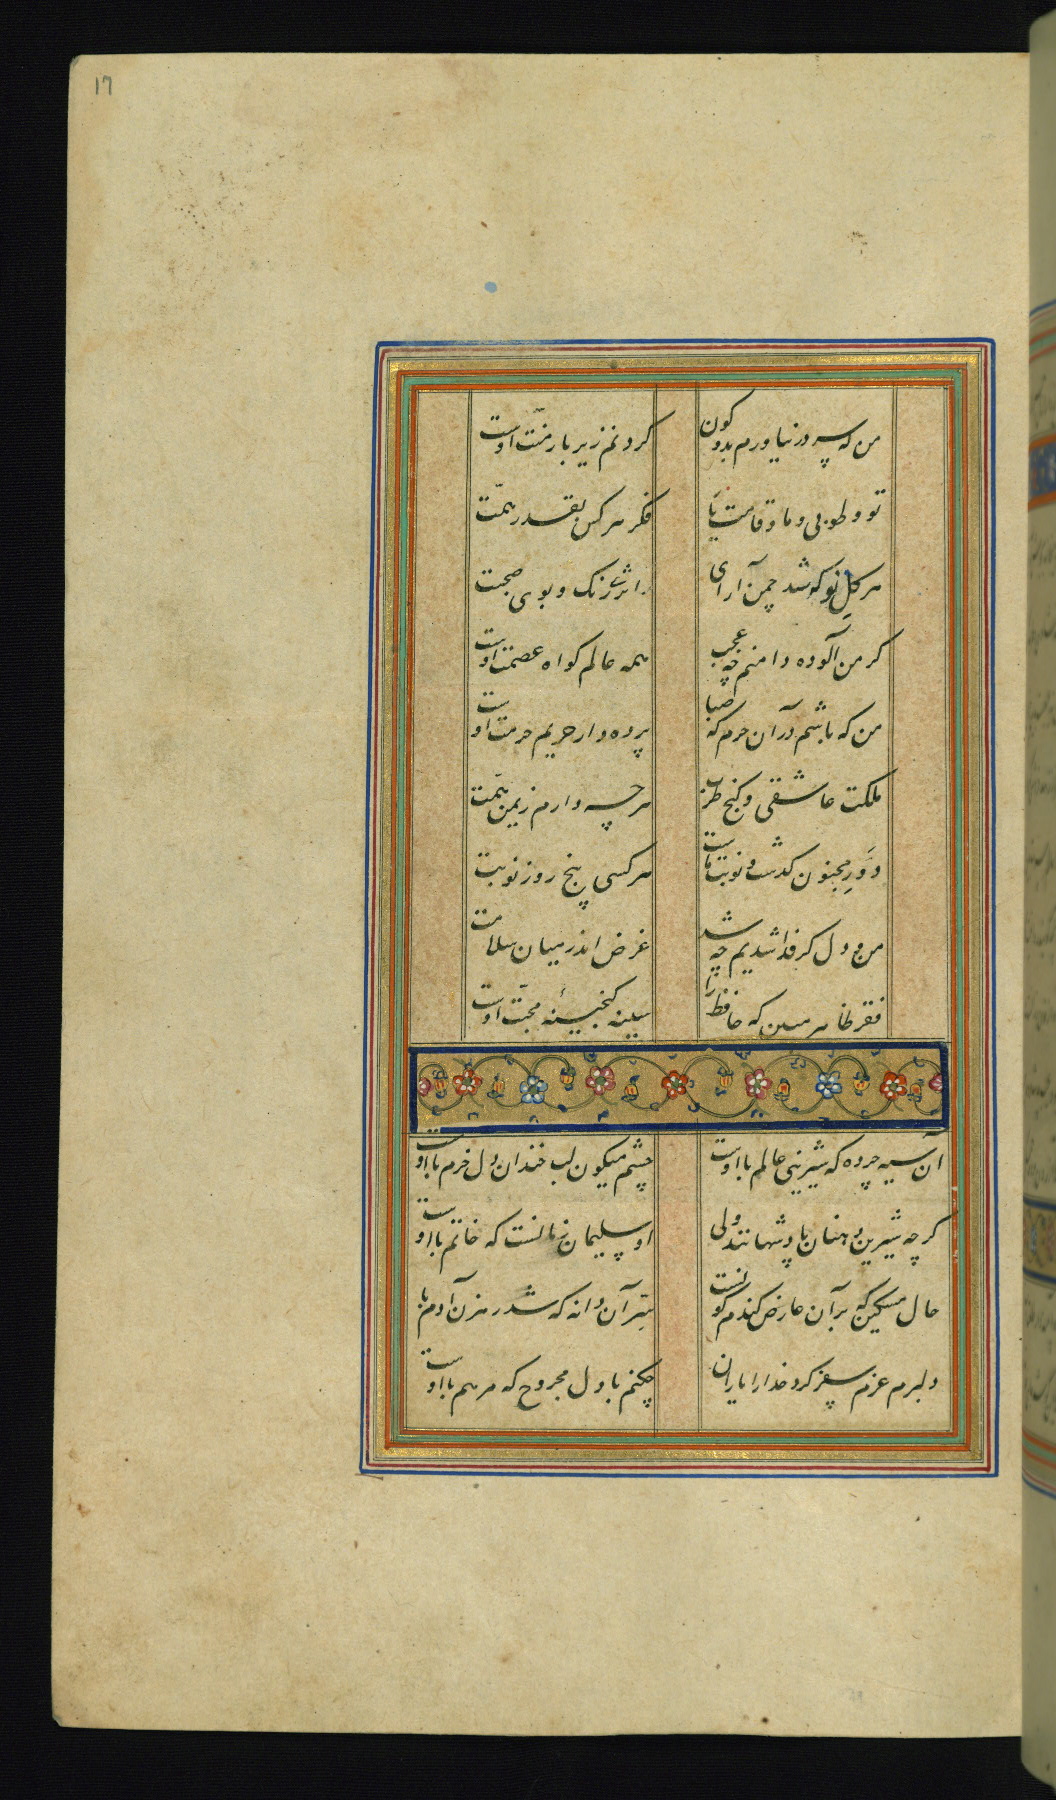 ١٦
من که سر درنیاورم بدو کون گردنم زیر بار منّت اوست
تو و طوبی و ما و قامت یا فکر هر کس بقدر همّت
هر گل نو که شد چمن آرای اثر رنک و بوی صحبت
کر من آلوده دامنم چه عجب همه عالم کواه عصمت اوست
من که باشم در آن حرم که صبا پرده دار حریم حرمت اوست
ملکت عاشقی و کنج طرب هر چه دارم ز یمن همّت
دَورِ مجنون کذشت و نوبت ماست هر کسی پنج روز نوبت
من و دل کر فدا شدیم چه شد غرض اندر میان سلامت
فقر ظاهر مبین که حافظ را سینه کنجینهٔ محبّت اوست
آن سیه چرده که شیرینی عالم با اوست چشم میکون لب خندان دل خرم با اوست
کر چه شیرین دهنان پادشهانند ولی او سلیمان زمانست که خاتم با اوست
خال مسکین که بر آن عارض کندم کونست سرّ آن دانه که شد رهزن آدم با
دلبرم عزم سفر کرد خدا را یاران چکنم با دل مجروح که مرهم با اوست